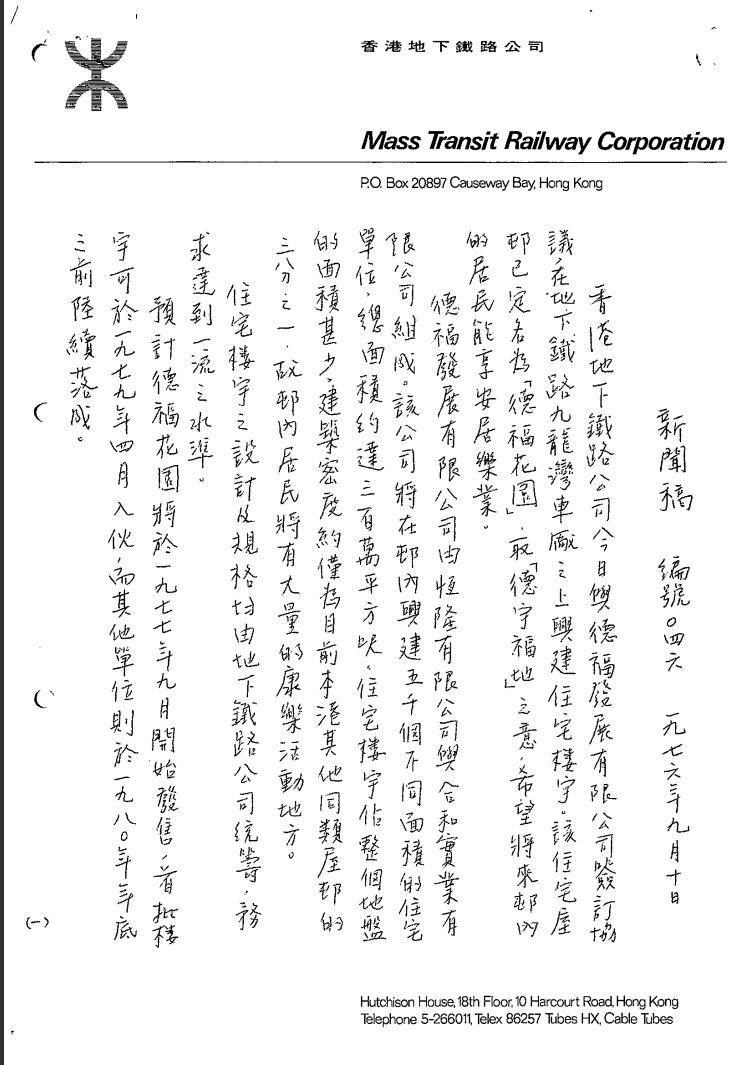 香港地下鐵路公司
Mass Transit Railway Corporation
P.O. Box 20897 Causeway Bay, Hong Kong
新聞稿 編號〇四六 一九七六年九月十日
香港地下鐵路公司今日與德福發展有限公司簽訂協
議，在地下鐵路九龍灣車廠之上興建住宅樓宇。該住宅屋
邨已定名為「德福花園」，取「德宇福地」之意，希望將來邨內
的居民能享安居樂業。
德福發展有限公司由恒隆有限公司與合和實業有
限公司組成。該公司將在邨內興建五千個不同面積的住宅
單位，總面積約達三百萬平方呎，住宅樓宇佔整個地盤
的面積甚少，建築密度約僅為目前本港其他同類屋邨的
三分之一，故邨內居民將有大量的康樂活動地方。
住宅樓宇之設計及規格均由地下鐵路公司統籌，務
求達到一流之水準。
預計德福花園將於一九七七年九月開始發售，首批樓
宇可於一九七九年四月入伙，而其他單位則於一九八〇年年底
之前陸續落成。
(一)
Hutchison House, 18th Floor, 10 Harcourt Road, Hong Kong
Telephone 5-266011, Telex 86257 Tubes HX, Cable Tubes